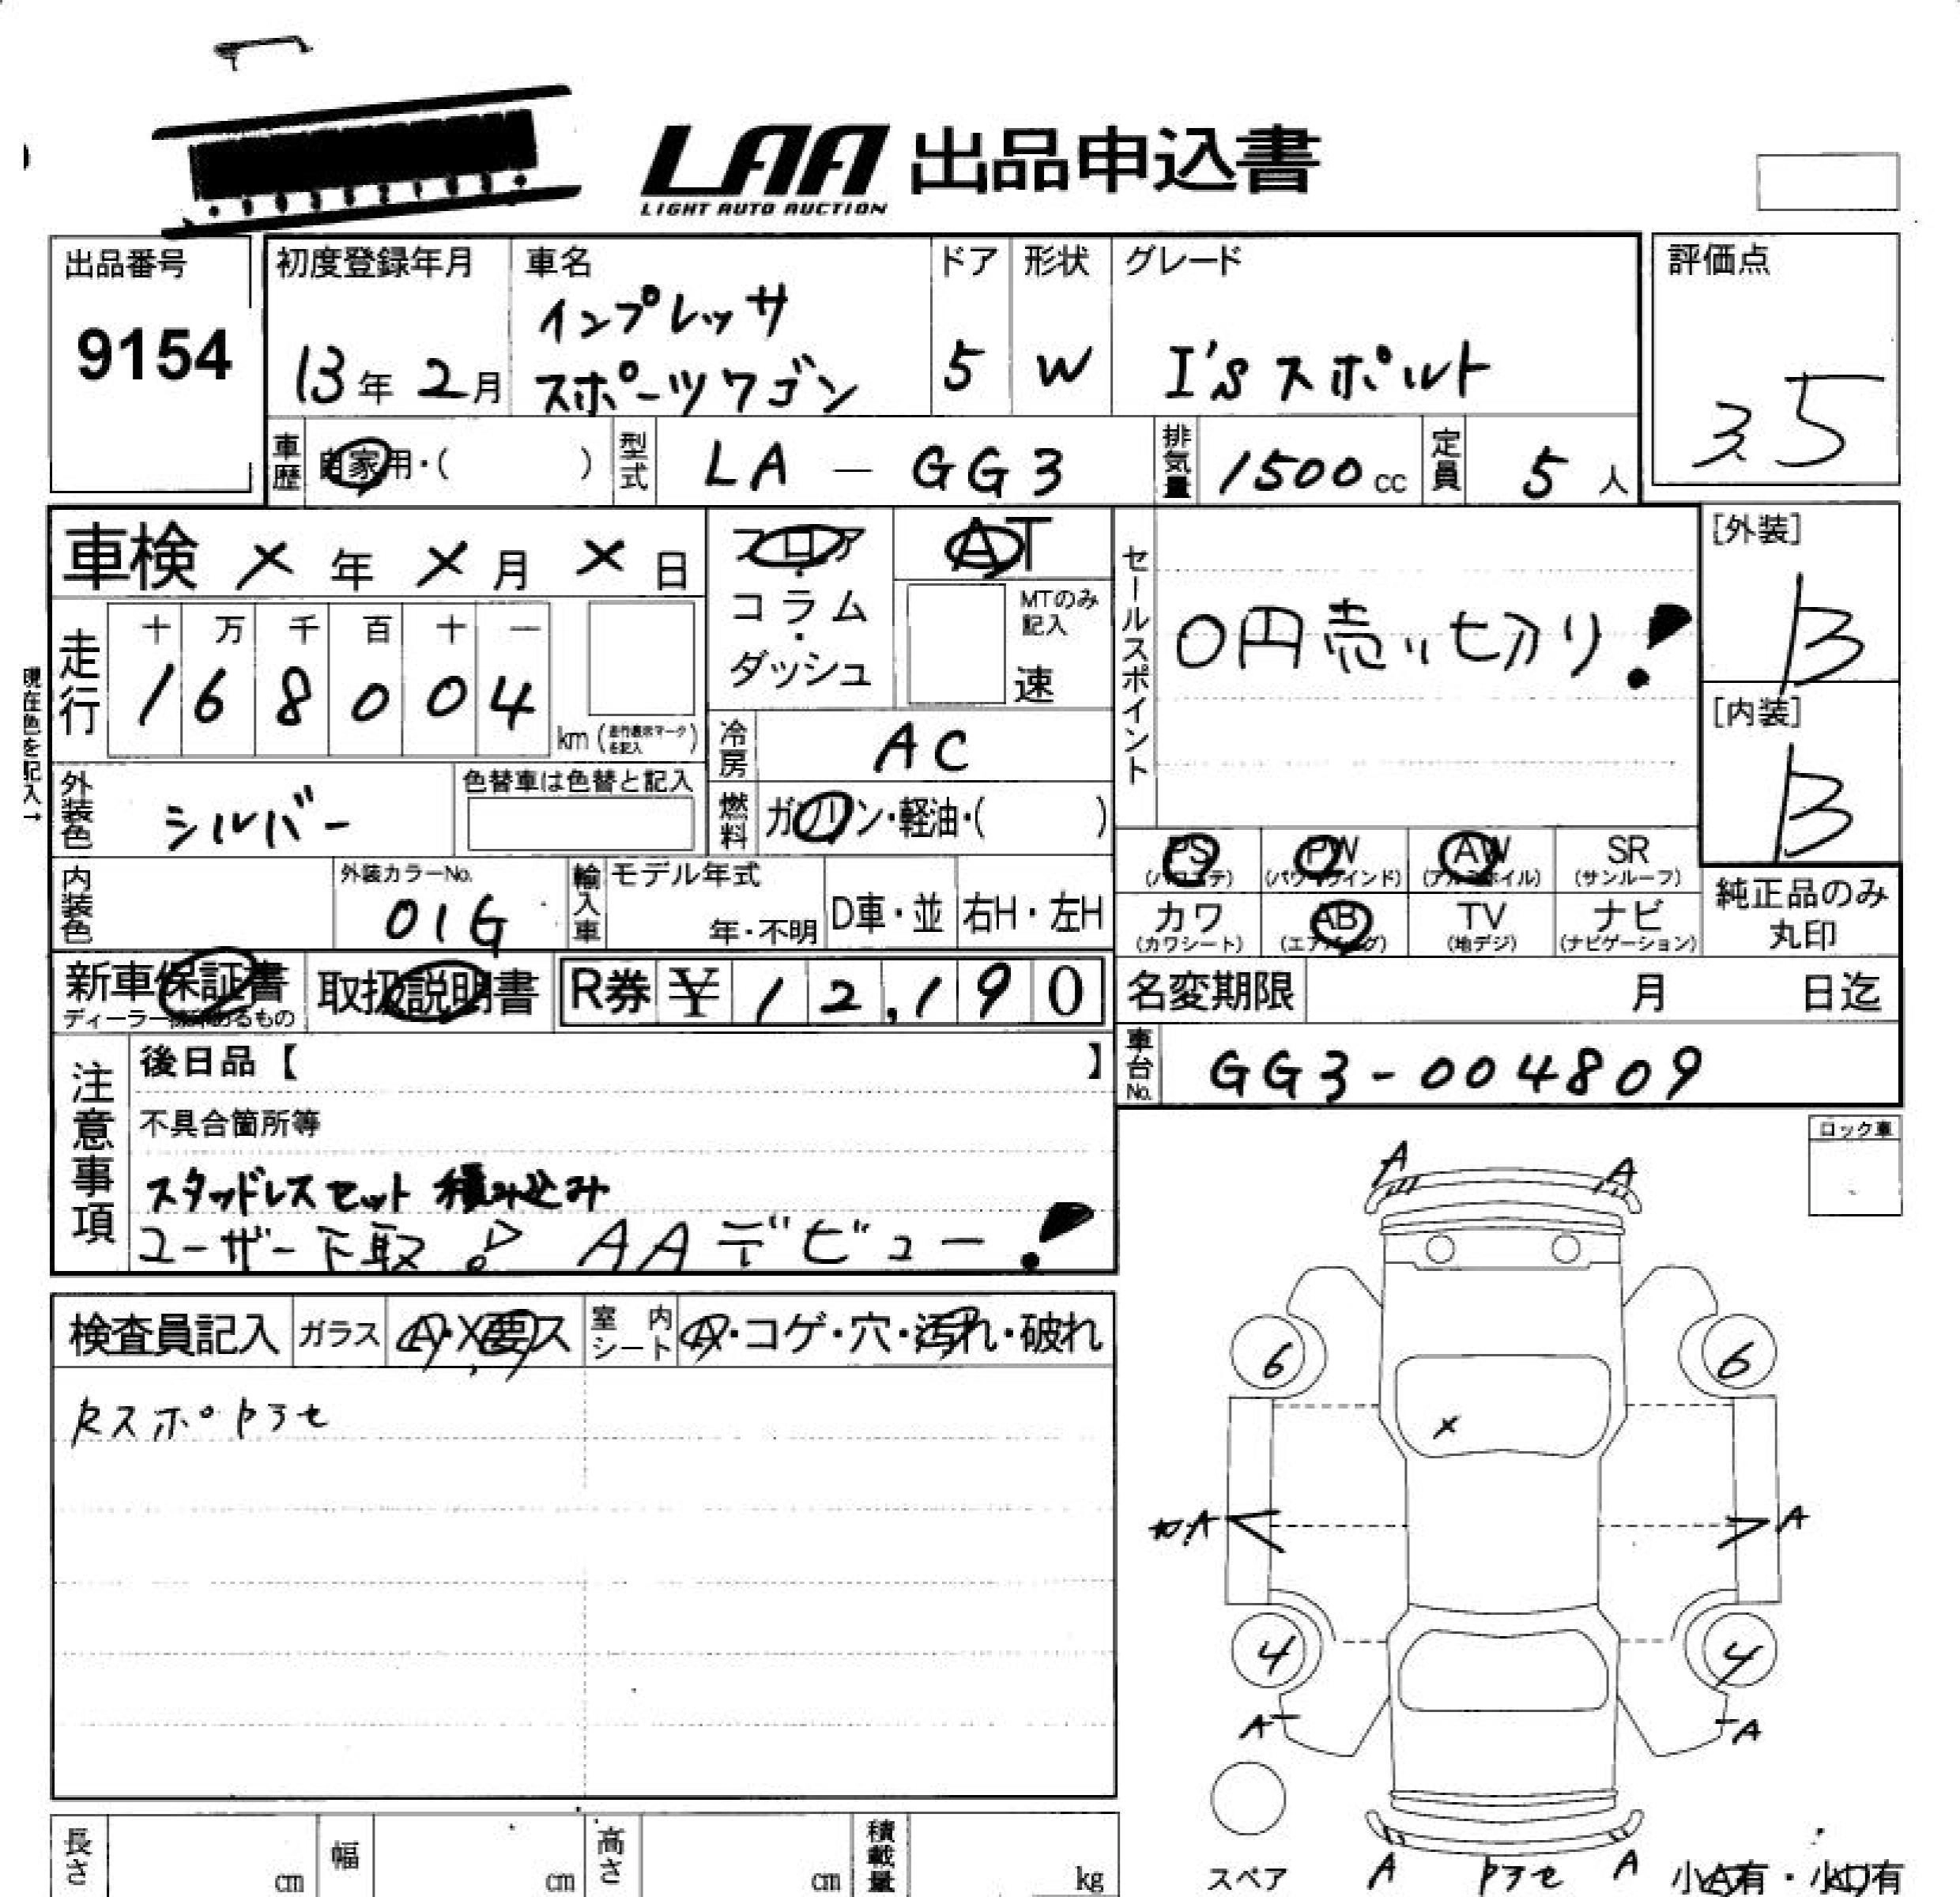 LAA 出品申込書
LIGHT AUTO AUCTION
出品番号
9154
初度登録年月
13年 2月
車名
インプレッサ
スポーツワゴン
ドア
5
形状
W
グレード
I's スポルト
評価点
3.5
車歴 自家用・( )
型式 LA - GG3
排気量 1500 cc
定員 5 人
車検 × 年 × 月 × 日
フロア・コラム・ダッシュ
AT
MTのみ記入
速
セールスポイント
0円売り切り!
[外装]
B
[内装]
B
現在色を記入→
走行
十 万 千 百 十 一
1 6 8 0 0 4
km (走行表示マークを記入)
冷房 AC
外装色 シルバー
色替車は色替と記入
燃料 ガソリン・軽油・( )
内装色
外装カラーNo.
01G
輸入車 モデル年式
年・不明
D車・並
右H・左H
PS (パワステ)
PW (パワーウインド)
AW (アルミホイル)
SR (サンルーフ)
カワ (カワシート)
AB (エアバッグ)
TV (地デジ)
ナビ (ナビゲーション)
純正品のみ丸印
新車保証書
取扱説明書
R券 ¥ 12,190
名変期限 月 日迄
車台No. GG3-004809
注意事項
後日品【 】
不具合箇所等
スタッドレスセット 積み込み
ユーザー下取! AAデビュー!
ロック車
検査員記入
ガラス A・X・要ス
室内シート A・コゲ・穴・汚れ・破れ
RスポPラセ
A A
6 6
×
A A
4 4
A A
スペア
A Pラセ A
小A有・小U有
長さ cm
幅 cm
高さ cm
積載量 kg